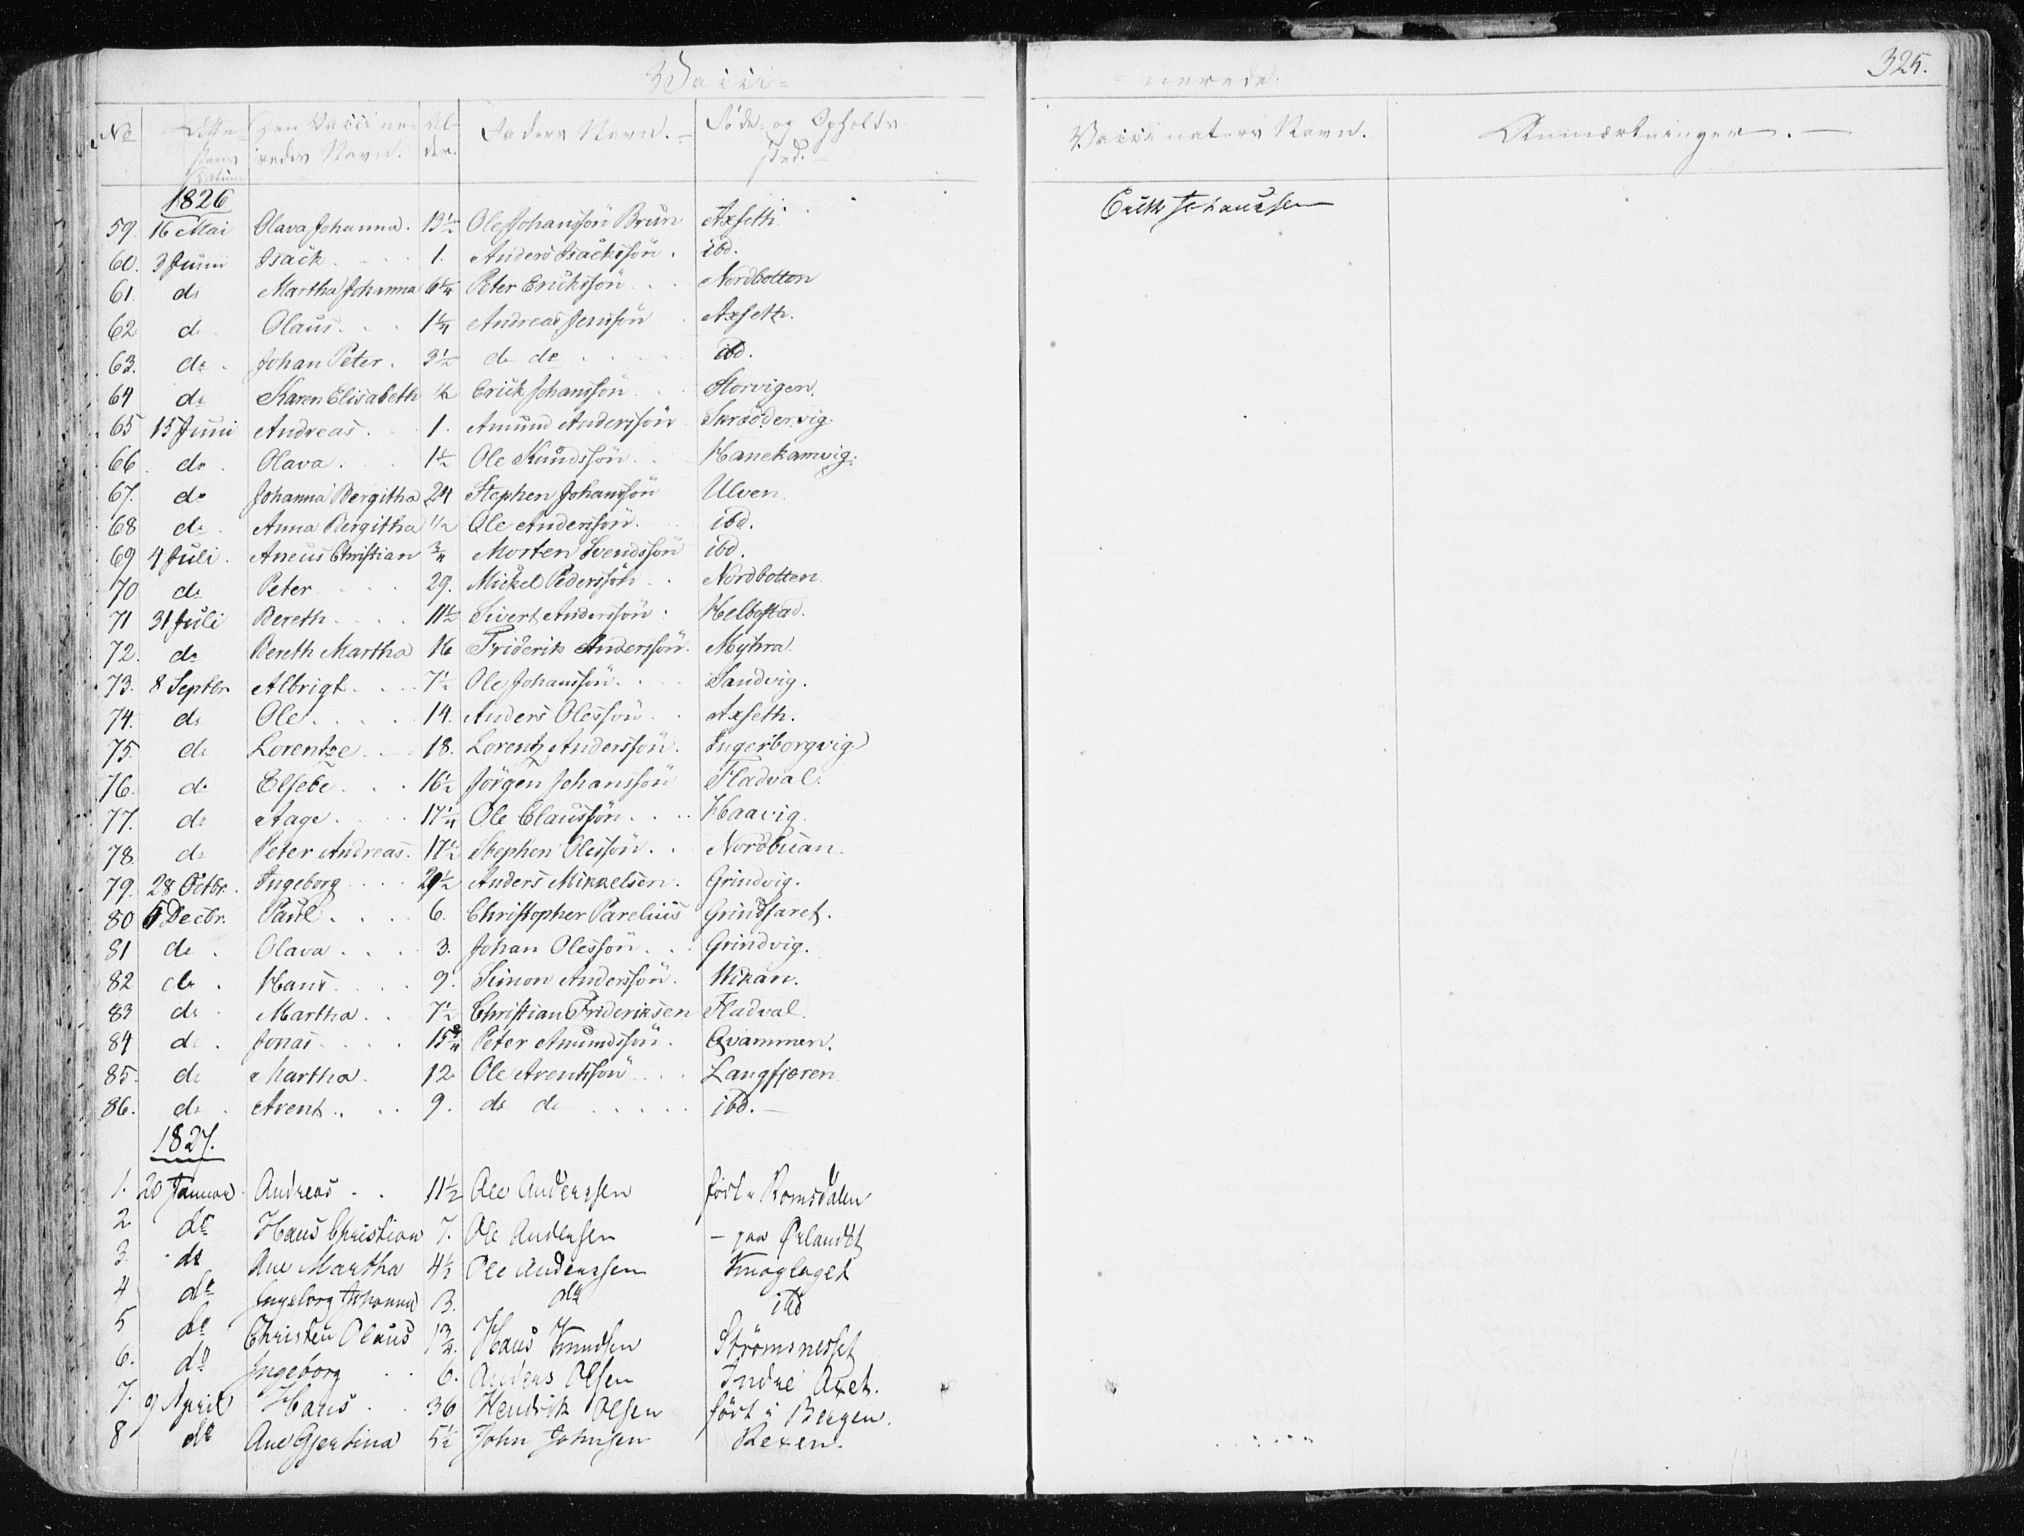 325.
Vacci= = nerede.
No Den Vaccine- Al- Faders Navn. Føde- og Opholds- Vaccinateurs Navn. Anmærkninger.
Datum redes Navn. der. sted.
1826
59. 16 Mai Olava Johanna. 13½ Ole Johanssön Brun Axseth
60. 3 Juni Isack 1. Anders Isackssön. ibd.
61. do Martha Johanna 6¼ Peter Erickssön Nordbotten
62 do Olaus. 1¼ Andreas Jenssön Axseth.
63. do Johan Peter. 3½ do do ibd.
64 do Karen Elisabeth ½ Erick Johanssön Storvigen.
65 15 Juni Andreas. 1. Amund Anderssön Skræddervig
66. do Olava. 1½ Ole Knudssön. Hanekamvig.
67. do Johanna Bergitha 24 Stephen Johanssön Ulven.
68 do Anna Bergitha ½ Ole Anderssön. ibd.
69 4 Juli. Aneus Christian ¾ Morten Svendssön ibd.
70 do Peter 29. Mickel Pederssön Nordbotten.
71 31 Juli Bereth 11½ Sivert Anderssön. Helbostad.
72. do Bereth Martha 16 Friderik Anderssön. Myhra.
73. 8 Septbr. Albrigt 7½ Ole Johanssön. Sandvig.
74. do Ole 14. Anders Olessön Axseth.
75 do Lorentze 18. Lorentz Anderssön. Ingerborgvig
76. do Elsebe 16½ Jörgen Johanssön Fladval.
77. do Aage 17¼ Ole Claussön. Haavig.
78. do Peter Andreas. 17½ Stephen Olessön. Nordbuan.
79. 28 Octbr. Ingeborg 29½ Anders Mikkelsen. Grindvig.
80 5 Decbr. Paul 6. Christopher Parelius Grindfaret.
81 do Olava 3. Johan Olessön Grindvig.
82 do Hans 9. Simon Anderssön. Wikan.
83 do Martha 7½ Christian Frideriksen Fladval.
84 do Jonas 15¾ Peter Amundssön. Qvammen.
85. do Martha. 12 Ole Arentssön Langfjæren.
86. do Arent 9. do do ibd.
1827.
1. 20 Januar Andreas 11½ Ole Anderssen født i Romsdalen
2 do Hans Christian 7. Ole Andersen - paa Ørlandet
3. do Ane Martha 4½ Ole Anderssen
4 do Ingeborg Johanna 3. do ibd
5 do Christen Olaus 1¾ Hans Knudsen Strömsnesset
6. do Ingeborg 6. Anders Olsen Indre Axet.
7. 9 April Hans 36 Hendrik Olsen født i Bergen.
8 do Ane Gjertina 5½ John Johnsen Rexen.